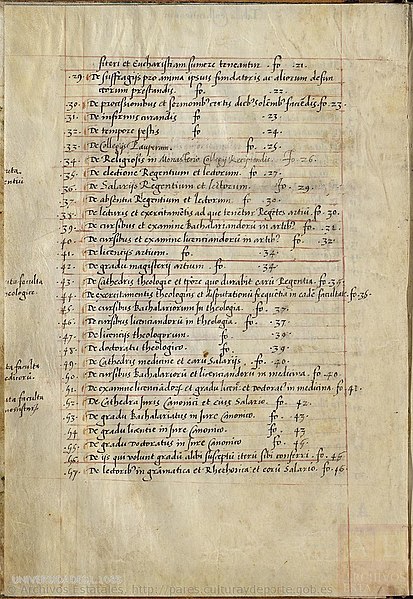 fiteri et Eucharistiam sumere teneantur. fo. 21.
.29. De suffragijs pro anima ipsius fundatoris ac aliorum defun
ctorum prestandis. fo. .22.
.30. De processionibus et sermonib' certis dieb' solemb' faciēdis. fo. 23.
31. De infirmis curandis fo .23.
32. De tempore festis fo .24.
33. De Collegijs Pauperum. fo. .25.
.34. De Religiosis in Monasterio Collegij Recipiendis. fo. 26.
.35. De electione Regentum et lectorum. fo .27.
.36. De Salarijs Regentium et lectorum. fo. 29.
.37. De absentia Regentum et lectorum. fo. 30.
.38. De lecturis et exercitamētis ad que tenetur Regētes artiū. fo. 30.
.39. De cursibus et examine Bachalariandorū in artib'. fo. 31.
40. De cursibus et examine licenciandorū in artib'. fo. .32.
41. De licencijs artium. fo .34.
42. De gradu magisterij artium. fo .34.
43. De Cathedris theologie et tp̄ore quo durabit carū Regentia. fo. 35.
44. De exercitamentis theologins et disputationū frequētia in eadē facultate. fo. 36.
45. De cursibus Bachalariorum in theologia. fo. 37.
46. De cursibus licenciandorum in theologia. fo. .37.
47. De licencijs theologorum. fo. .39.
48. De doctoratu theologico. fo .39.
.49. De Cathedris medicine et earū Salarijs. fo. .40.
.50. De cursibus Bachalariorū et licenciandorū in medicina. fo. 40.
.51. De examine licenciādorū et gradu licen. et doctorat' in medicina. fo. 41.
52. De Cathedra Juris Canonici et eius Salario. fo. 42.
53. De gradu Bachalariatus in Jure Canonico. fo. 43.
54. De gradu licentie in Jure Canonico. fo. 43
55. De gradu Doctoratus in Jure Canonico fo. 45
56. De ijs qui volunt gradū alibi susceptū iterū sibi conferri. fo. 45
.57. De lectorib' in gramatica et Rhethorica et eorū Salario. fo. 46.
ta faculta
eologice.
ta faculta
edicorū.
ata faculta
UNIVERSIDADES,L.1085
© Archivos Estatales, http://pares.culturaydeporte.gob.es